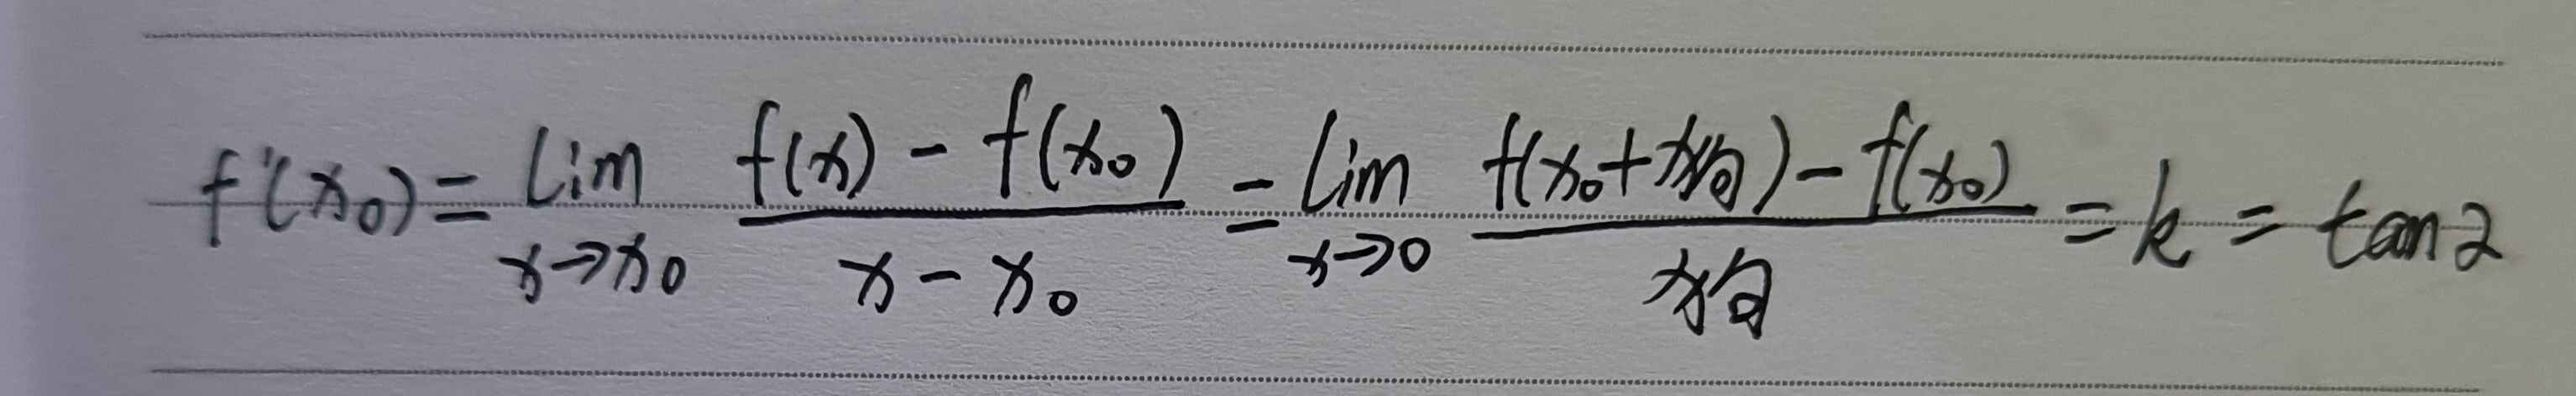 f'(x₀) = lim_{x→x₀} (f(x) - f(x₀))/(x - x₀) = lim_{x→0} (f(x₀+x) - f(x₀))/x = k = tan α